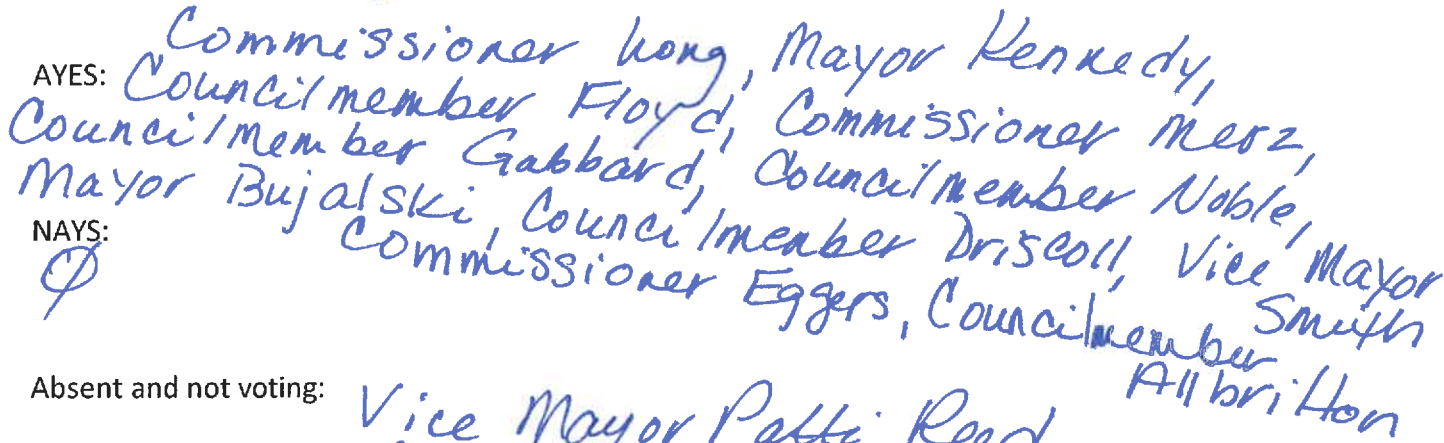 Commissioner Long, Mayor Kennedy,
AYES: Councilmember Floyd, Commissioner Merz,
Councilmember Gabbard, Councilmember Noble,
Mayor Bujalski, Councilmember Driscoll, Vice Mayor Smith
NAYS: Commissioner Eggers, Councilmember Allbritton
Ø
Absent and not voting: Vice Mayor Patti Reed